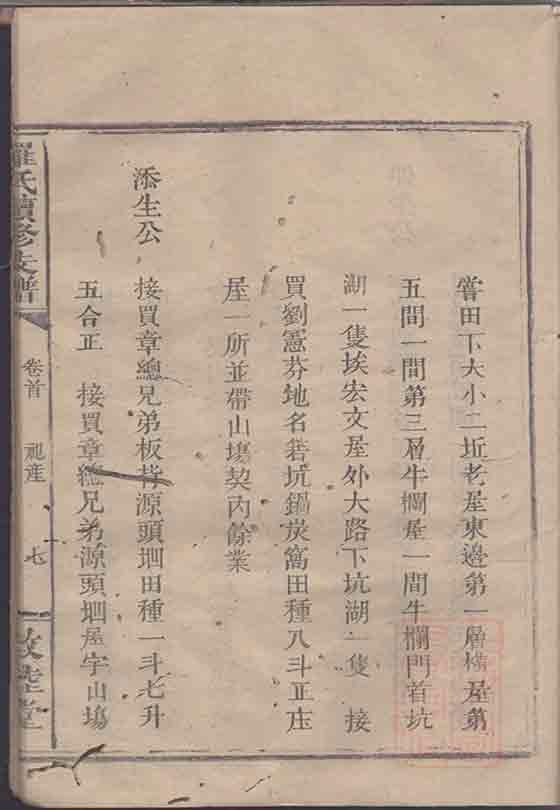 嘗田下大小二坵老屋東邊第一層橫屋第
五間一間第三層牛欄屋一間牛欄門首坑
湖一隻埃宏文屋外大路下坑湖一隻　接
買劉憲芬地名砻坑鍋炭窩田種八斗正庄
屋一所並帶山塲契內餘業
添生公　接買章總兄弟板背源頭垇田種一斗七升
五合正　接買章總兄弟源頭垇屋宇山塲
羅氏續修支譜
卷首　祀産　七
敦睦堂